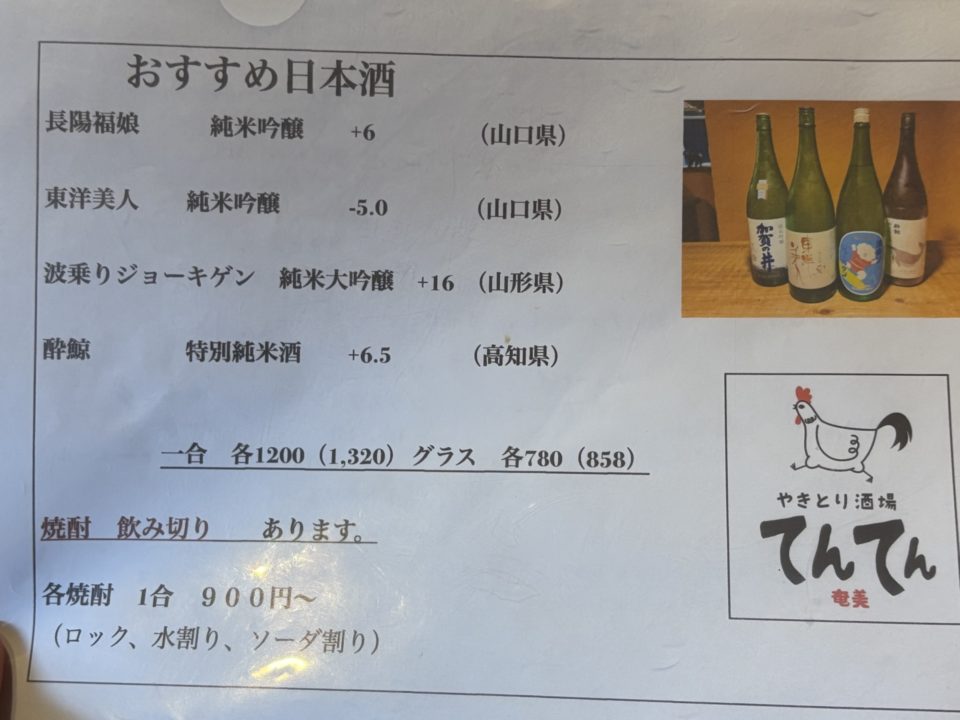 おすすめ日本酒
長陽福娘 純米吟醸 +6 (山口県)
東洋美人 純米吟醸 -5.0 (山口県)
波乗りジョーキゲン 純米大吟醸 +16 (山形県)
酔鯨 特別純米酒 +6.5 (高知県)
一合 各1200(1,320) グラス 各780(858)
焼酎 飲み切り あります。
各焼酎 1合 900円〜
(ロック、水割り、ソーダ割り)
加賀の井
やきとり酒場
てんてん
奄美